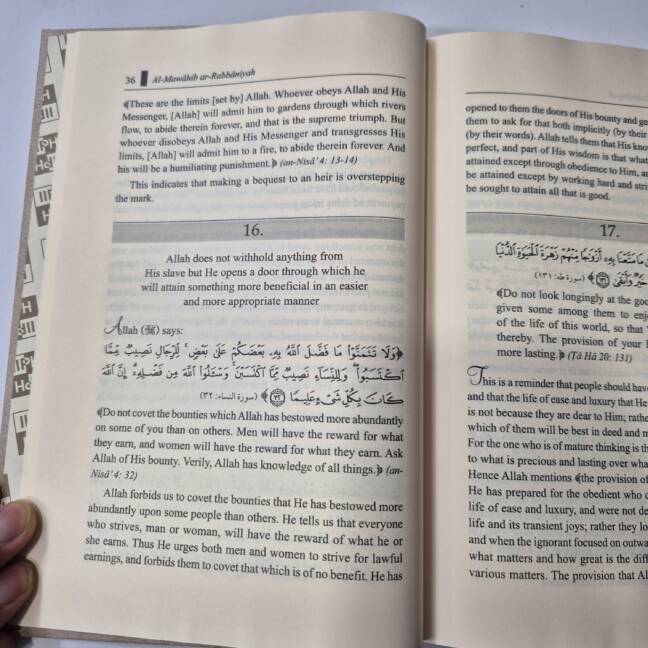 36 Al-Mawâhib ar-Rabbâniyah
﴾These are the limits [set by] Allah. Whoever obeys Allah and His
Messenger, [Allah] will admit him to gardens through which rivers
flow, to abide therein forever, and that is the supreme triumph. But
whoever disobeys Allah and His Messenger and transgresses His
limits, [Allah] will admit him to a fire, to abide therein forever. And
his will be a humiliating punishment.﴿ (an-Nisâ' 4: 13-14)
This indicates that making a bequest to an heir is overstepping
the mark.
16.
Allah does not withhold anything from
His slave but He opens a door through which he
will attain something more beneficial in an easier
and more appropriate manner
Allah (ﷻ) says:
﴿وَلَا تَتَمَنَّوْا۟ مَا فَضَّلَ ٱللَّهُ بِهِۦ بَعْضَكُمْ عَلَىٰ بَعْضٍ ۚ لِّلرِّجَالِ نَصِيبٌ مِّمَّا
ٱكْتَسَبُوا۟ ۖ وَلِلنِّسَآءِ نَصِيبٌ مِّمَّا ٱكْتَسَبْنَ ۚ وَسْـَٔلُوا۟ ٱللَّهَ مِن فَضْلِهِۦٓ ۗ إِنَّ ٱللَّهَ
كَانَ بِكُلِّ شَىْءٍ عَلِيمًا ٣٢﴾ (سورة النساء: ٣٢)
﴾Do not covet the bounties which Allah has bestowed more abundantly
on some of you than on others. Men will have the reward for what
they earn, and women will have the reward for what they earn. Ask
Allah of His Bounty. Verily, Allah has knowledge of all things.﴿ (an-
Nisâ' 4: 32)
Allah forbids us to covet the bounties that He has bestowed more
abundantly upon some people than others. He tells us that everyone
who strives, man or woman, will have the reward of what he or
she earns. Thus He urges both men and women to strive for lawful
earnings, and forbids them to covet that which is of no benefit. He has
opened to them the doors of His bounty and
them to ask for that both implicitly (by their
(by their words). Allah tells them that His
perfect, and part of His wisdom is that what
attained except through obedience to Him,
be attained except by working hard and
be sought to attain all that is good.
17.
مَا مَتَّعْنَا بِهِۦٓ أَزْوَٰجًا مِّنْهُمْ زَهْرَةَ ٱلْحَيَوٰةِ ٱلدُّنْيَا
خَيْرٌ وَأَبْقَىٰ ١٣١﴾ (سورة طه: ١٣١)
﴾Do not look longingly at the
given some among them to
of the life of this world, so that
thereby. The provision of your
more lasting.﴿ (Tâ Hâ 20: 131)
This is a reminder that people should
and that the life of ease and luxury that
is not because they are dear to Him;
which of them will be best in deed and
For the one who is of mature thinking is
to what is precious and lasting over
Hence Allah mentions ﴾the provision of
He has prepared for the obedient who
life of ease and luxury, and were not
life and its transient joys; rather they
and when the ignorant focused on
what matters and how great is the
various matters. The provision that